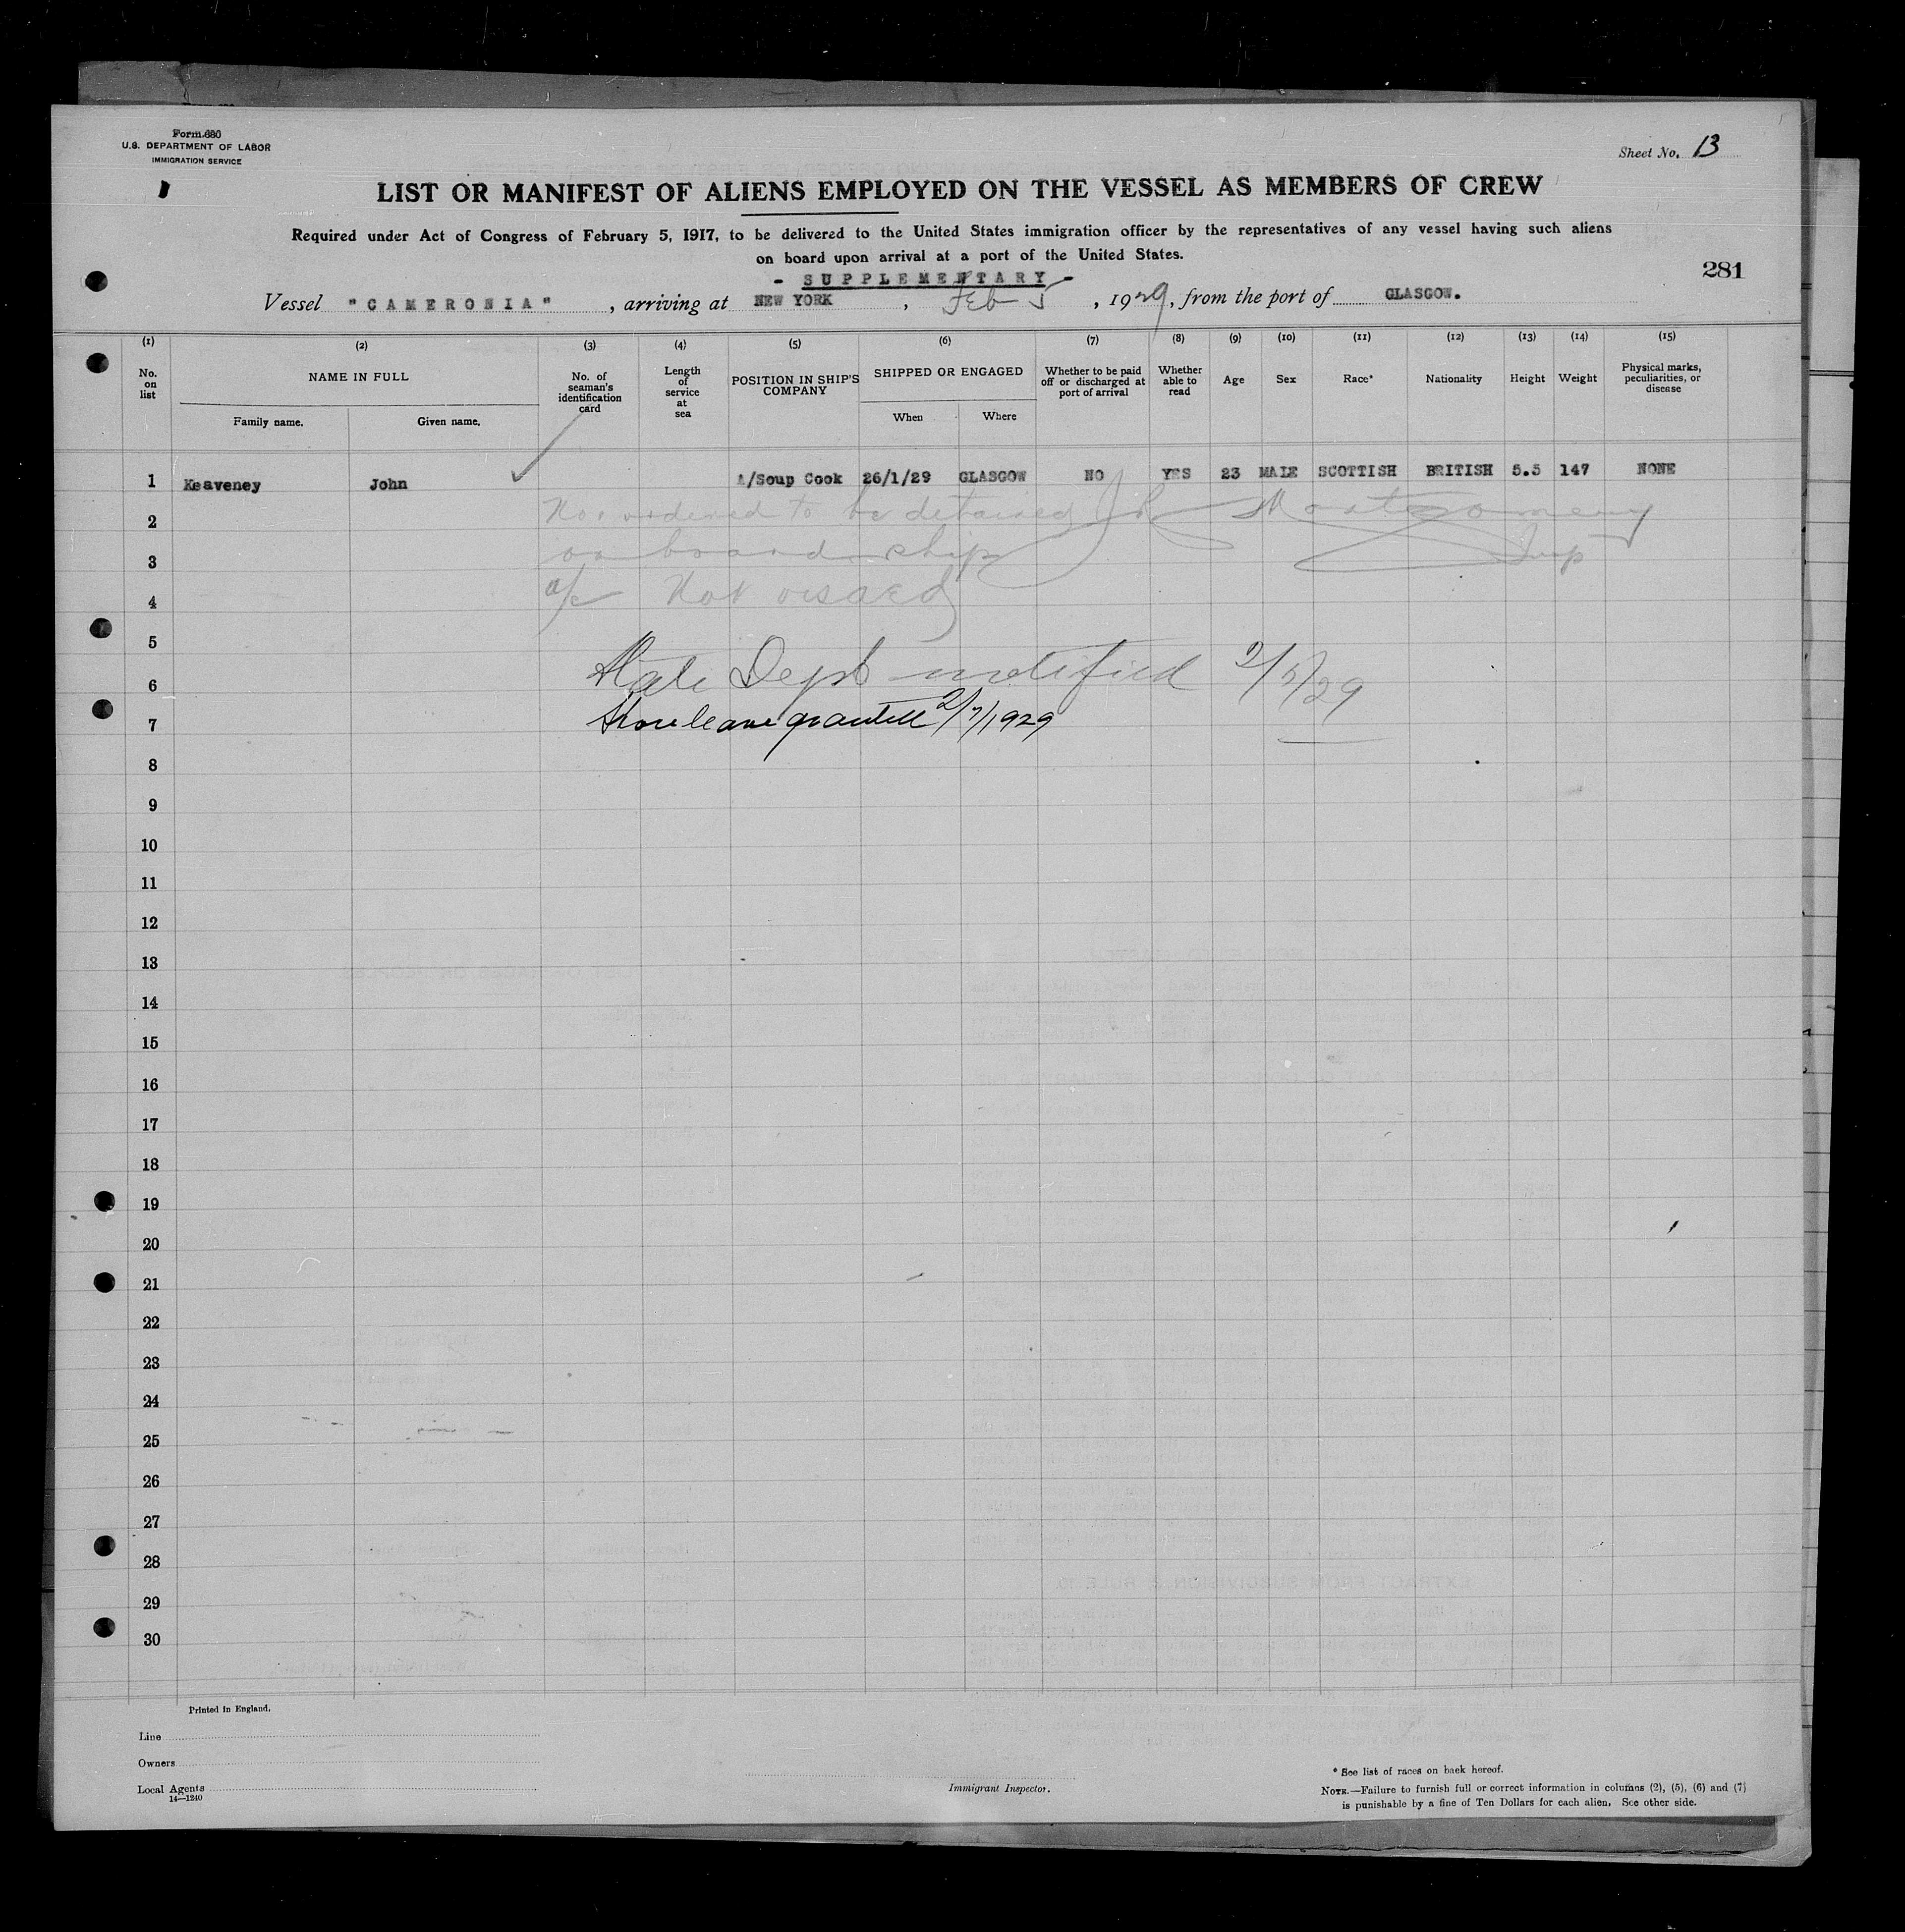 Form 680
U.S. DEPARTMENT OF LABOR
IMMIGRATION SERVICE
Sheet No. 13
LIST OR MANIFEST OF ALIENS EMPLOYED ON THE VESSEL AS MEMBERS OF CREW
Required under Act of Congress of February 5, 1917, to be delivered to the United States immigration officer by the representatives of any vessel having such aliens
on board upon arrival at a port of the United States.
281
- SUPPLEMENTARY -
Vessel "CAMERONIA", arriving at NEW YORK, Feb 5, 1929, from the port of GLASGOW.
(1) (2) (3) (4) (5) (6) (7) (8) (9) (10) (11) (12) (13) (14) (15)
No. on list
NAME IN FULL
Family name. Given name.
No. of seaman's identification card
Length of service at sea
POSITION IN SHIP'S COMPANY
SHIPPED OR ENGAGED
When Where
Whether to be paid off or discharged at port of arrival
Whether able to read
Age
Sex
Race*
Nationality
Height
Weight
Physical marks, peculiarities, or disease
1 Keaveney John A/Soup Cook 26/1/29 GLASGOW NO YES 23 MALE SCOTTISH BRITISH 5.5 147 NONE
2 No 1 ordered to be detained Montgomery
3 on board ship Insp
4 a/c Not visaed
5
6 State Dept notified 2/5/29
7 Shore leave granted 2/7/1929
8
9
10
11
12
13
14
15
16
17
18
19
20
21
22
23
24
25
26
27
28
29
30
Printed in England.
Line
Owners
Local Agents
14—1240
Immigrant Inspector.
* See list of races on back hereof.
NOTE.—Failure to furnish full or correct information in columns (2), (5), (6) and (7)
is punishable by a fine of Ten Dollars for each alien. See other side.